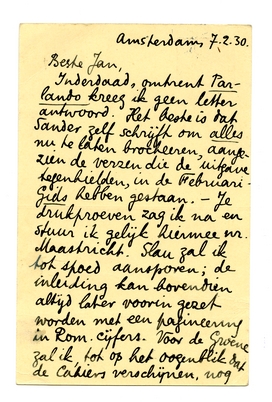 Amsterdam, 7.2.30.
Beste Jan,
Inderdaad, omtrent Par-
lando kreeg ik geen letter
antwoord. Het beste is dat
Sander zelf schrijft om alles
nu te laten brocheeren, aange-
zien de verzen die de uitgave
tegenhielden, in de Februari-
Gids hebben gestaan. – Je
drukproeven zag ik na en
stuur ik gelijk hiermee nr.
Maastricht. Stau zal ik
tot spoed aansporen; de
inleiding kan bovendien
altijd later voorin gezet
worden met een pagineering
in Rom. cijfers. Voor de Groene
zal ik, tot op het oogenblik dat
de Cahiers verschijnen, nog